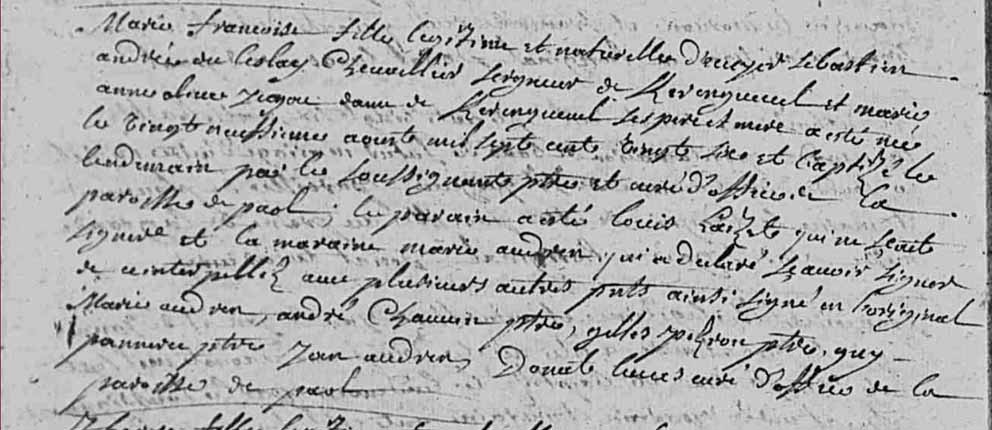 Marie francoise fille legitime et naturelle d'ecuyer sebastien
andrée du leslay Chevallier seigneur de Kerenqueuel et marie
anne olive dame de Kerenqueuel ses pere et mere a esté née
le vingt neuffieme aout mil sept cents vingt six et baptizé le
lendemain par le soussignante ptre et curé d'office de la
paroisse de paol ; le parain a esté louis qui ne scait
signer et la maraine marie audren qui a declaré scavoir signer
de ce interpellez avec plusieurs autres pnts ainsi signé en l'original
Marie audren, andré Chauvin ptre, gilles ptre, guy
ptre, Jan audren, curé d'office de la
paroisse de paol
fille